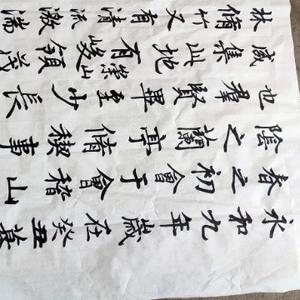 永和九年歲在癸丑暮
春之初會于會稽山
陰之蘭亭脩禊事
也羣賢畢至少長
咸集此地有崇山峻領茂
林脩竹又有清流激湍